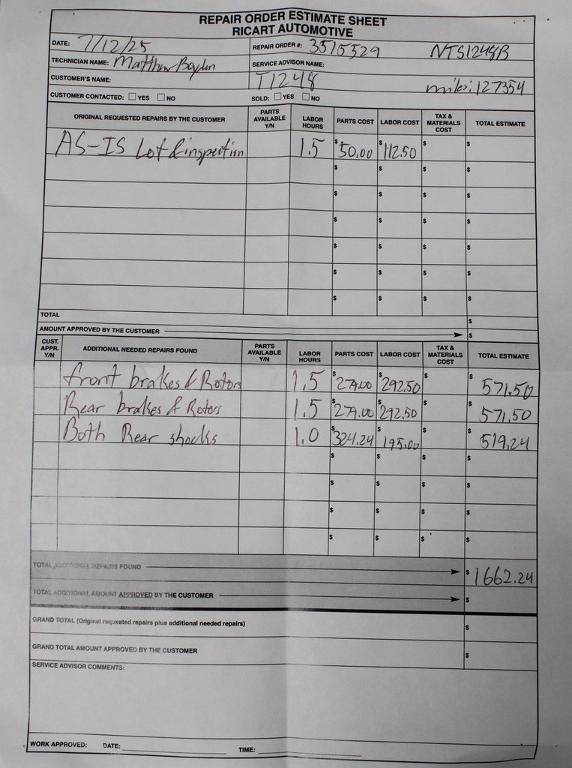 REPAIR ORDER ESTIMATE SHEET
RICART AUTOMOTIVE
DATE: 7/12/25 REPAIR ORDER #: 3515529 NTS1248B
TECHNICIAN NAME: Matthew Boylan SERVICE ADVISOR NAME:
CUSTOMER'S NAME: T1248 miles: 127354
CUSTOMER CONTACTED: YES NO SOLD: YES NO
ORIGINAL REQUESTED REPAIRS BY THE CUSTOMER PARTS AVAILABLE Y/N LABOR HOURS PARTS COST LABOR COST TAX & MATERIALS COST TOTAL ESTIMATE
AS-IS Lot & inspection 1.5 $50.00 $112.50 $ $
$ $ $ $
$ $ $ $
$ $ $ $
$ $ $ $
$ $ $ $
$ $ $ $
TOTAL $
AMOUNT APPROVED BY THE CUSTOMER $
CUST. APPR. Y/N ADDITIONAL NEEDED REPAIRS FOUND PARTS AVAILABLE Y/N LABOR HOURS PARTS COST LABOR COST TAX & MATERIALS COST TOTAL ESTIMATE
front brakes & Rotors 1.5 $279.00 $292.50 $ $571.50
Rear brakes & Rotors 1.5 $279.00 $292.50 $ $571.50
Both Rear shocks 1.0 $324.24 $195.00 $ $519.24
$ $ $ $
$ $ $ $
$ $ $ $
$ $ $ $
TOTAL ADDITIONAL REPAIRS FOUND $1662.24
TOTAL ADDITIONAL AMOUNT APPROVED BY THE CUSTOMER $
GRAND TOTAL (Original requested repairs plus additional needed repairs) $
GRAND TOTAL AMOUNT APPROVED BY THE CUSTOMER $
SERVICE ADVISOR COMMENTS:
WORK APPROVED: DATE: TIME: